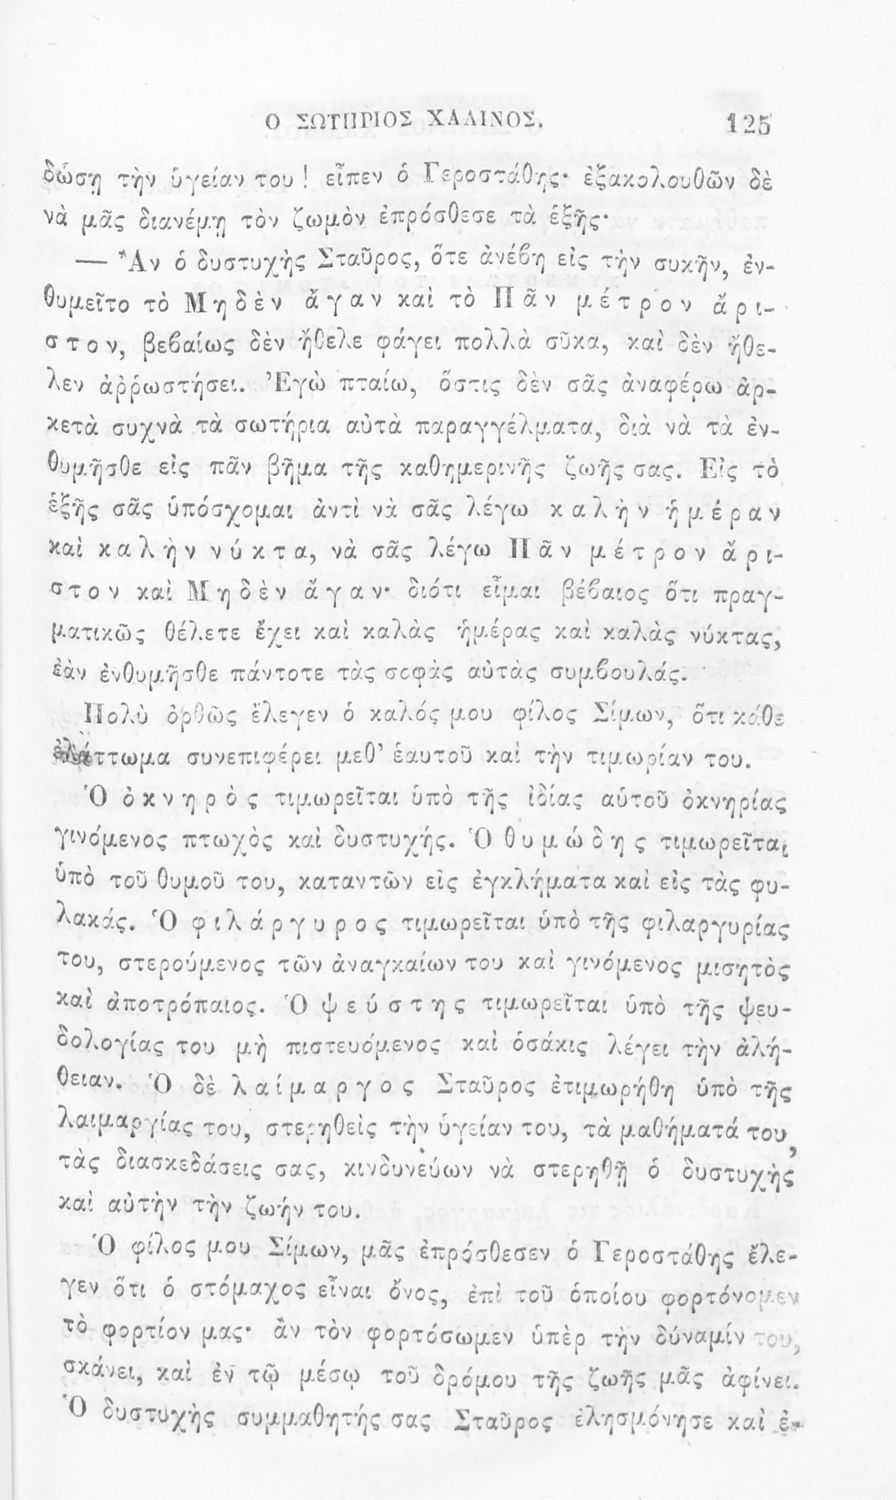 Ο ΣΩΤΗΡΙΟΣ ΧΑΛΙΝΟΣ. 125
δώσῃ τὴν ὑγείαν του ! εἶπεν ὁ Γεροστάθης· ἐξακολουθῶν δὲ
νὰ μᾶς διανέμῃ τὸν ζωμὸν ἐπρόσθεσε τὰ ἑξῆς·
— Ἂν ὁ δυστυχὴς Σταῦρος, ὅτε ἀνέβη εἰς τὴν συκῆν, ἐν-
θυμεῖτο τὸ Μηδὲν ἄγαν καὶ τὸ Πᾶν μέτρον ἄρι-
στον, βεβαίως δὲν ἤθελε φάγει πολλὰ σῦκα, καὶ δὲν ἤθε-
λεν ἀῤῥωστήσει. Ἐγὼ πταίω, ὅστις δὲν σᾶς ἀναφέρω ἀρ-
κετὰ συχνὰ τὰ σωτήρια αὐτὰ παραγγέλματα, διὰ νὰ τὰ ἐν-
θυμῆσθε εἰς πᾶν βῆμα τῆς καθημερινῆς ζωῆς σας. Εἰς τὸ
ἑξῆς σᾶς ὑπόσχομαι ἀντὶ νὰ σᾶς λέγω καλὴν ἡμέραν
καὶ καλὴν νύκτα, νὰ σᾶς λέγω Πᾶν μέτρον ἄρι-
στον καὶ Μηδὲν ἄγαν· διότι εἶμαι βέβαιος ὅτι πραγ-
ματικῶς θέλετε ἔχει καὶ καλὰς ἡμέρας καὶ καλὰς νύκτας,
ἐὰν ἐνθυμῆσθε πάντοτε τὰς σοφὰς αὐτὰς συμβουλάς.
Πολὺ ὀρθῶς ἔλεγεν ὁ καλός μου φίλος Σίμων, ὅτι κάθε
ἐλάττωμα συνεπιφέρει μεθ' ἑαυτοῦ καὶ τὴν τιμωρίαν του.
Ὁ ὀκνηρὸς τιμωρεῖται ὑπὸ τῆς ἰδίας αὑτοῦ ὀκνηρίας
γινόμενος πτωχὸς καὶ δυστυχής. Ὁ θυμώδης τιμωρεῖται
ὑπὸ τοῦ θυμοῦ του, καταντῶν εἰς ἐγκλήματα καὶ εἰς τὰς φυ-
λακάς. Ὁ φιλάργυρος τιμωρεῖται ὑπὸ τῆς φιλαργυρίας
του, στερούμενος τῶν ἀναγκαίων του καὶ γινόμενος μισητὸς
καὶ ἀποτρόπαιος. Ὁ ψεύστης τιμωρεῖται ὑπὸ τῆς ψευ-
δολογίας του μὴ πιστευόμενος καὶ ὁσάκις λέγει τὴν ἀλή-
θειαν. Ὁ δὲ λαίμαργος Σταῦρος ἐτιμωρήθη ὑπὸ τῆς
λαιμαργίας του, στερηθεὶς τὴν ὑγείαν του, τὰ μαθήματά του,
τὰς διασκεδάσεις σας, κινδυνεύων νὰ στερηθῇ ὁ δυστυχὴς
καὶ αὐτὴν τὴν ζωήν του.
Ὁ φίλος μου Σίμων, μᾶς ἐπρόσθεσεν ὁ Γεροστάθης ἔλε-
γεν ὅτι ὁ στόμαχος εἶναι ὄνος, ἐπὶ τοῦ ὁποίου φορτόνομεν
τὸ φορτίον μας· ἂν τὸν φορτόσωμεν ὑπὲρ τὴν δύναμίν του,
σκάνει, καὶ ἐν τῷ μέσῳ τοῦ δρόμου τῆς ζωῆς μᾶς ἀφίνει.
Ὁ δυστυχὴς συμμαθητής σας Σταῦρος ἐλησμόνησε καὶ ἐ-